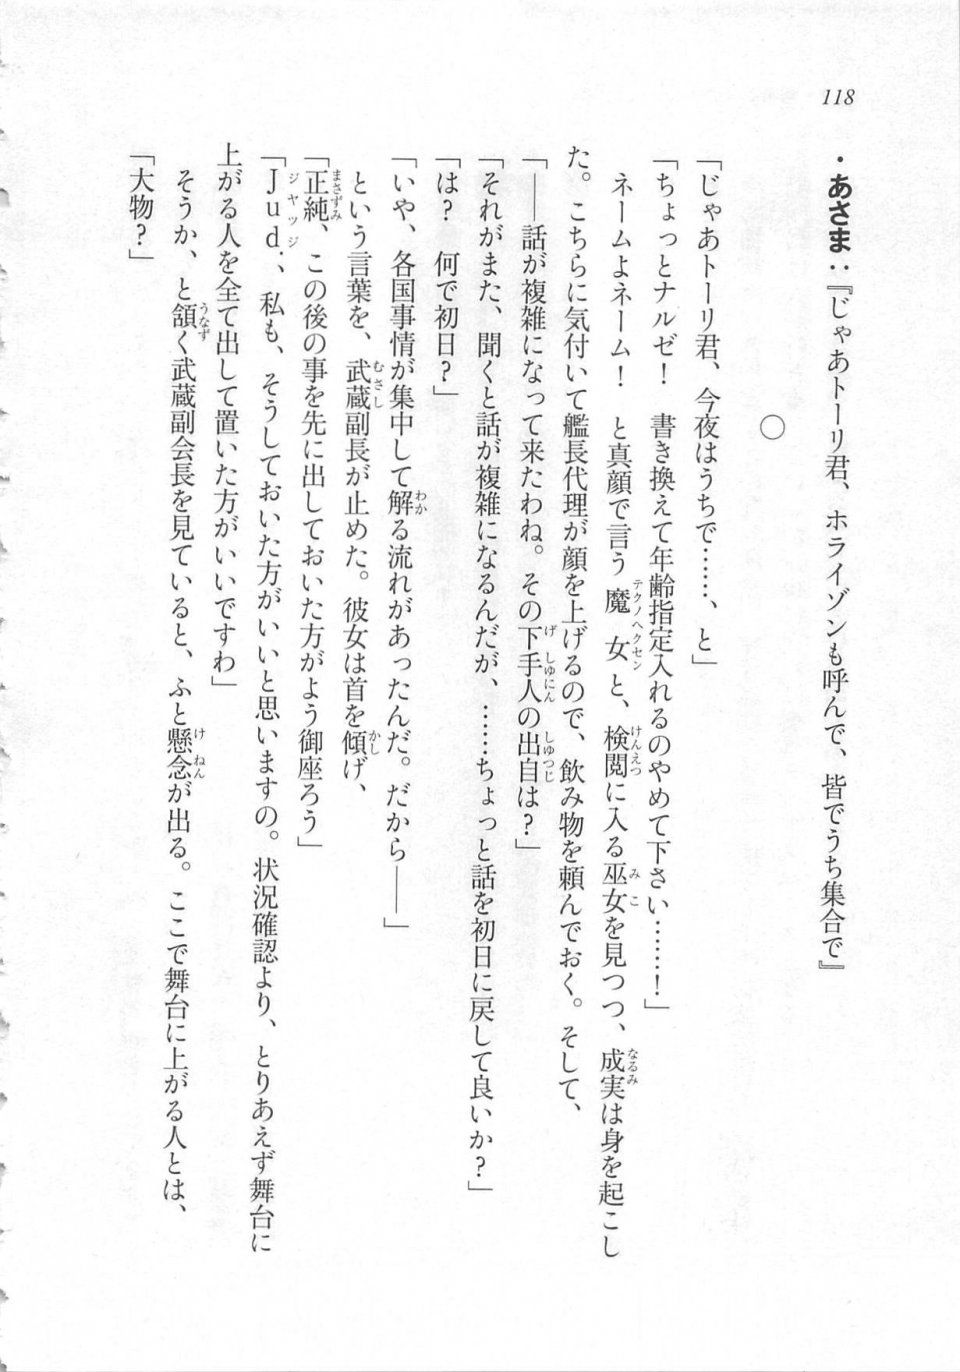 118
・あさま：『じゃあトーリ君、ホライゾンも呼んで、皆でうち集合で』
○
「じゃあトーリ君、今夜はうちで……、と」
「ちょっとナルゼ！　書き換えて年齢指定入れるのやめて下さい……！」
ネームよネーム！　と真顔で言う魔女と、検閲に入る巫女を見つつ、成実は身を起こし
た。こちらに気付いて艦長代理が顔を上げるので、飲み物を頼んでおく。そして、
「――話が複雑になって来たわね。その下手人の出自は？」
「それがまた、聞くと話が複雑になるんだが、……ちょっと話を初日に戻して良いか？」
「は？　何で初日？」
「いや、各国事情が集中して解る流れがあったんだ。だから――」
という言葉を、武蔵副長が止めた。彼女は首を傾げ、
「正純、この後の事を先に出しておいた方がよう御座ろう」
「Ｊｕｄ．、私も、そうしておいた方がいいと思いますの。状況確認より、とりあえず舞台に
上がる人を全て出して置いた方がいいですわ」
そうか、と頷く武蔵副会長を見ていると、ふと懸念が出る。ここで舞台に上がる人とは、
「大物？」